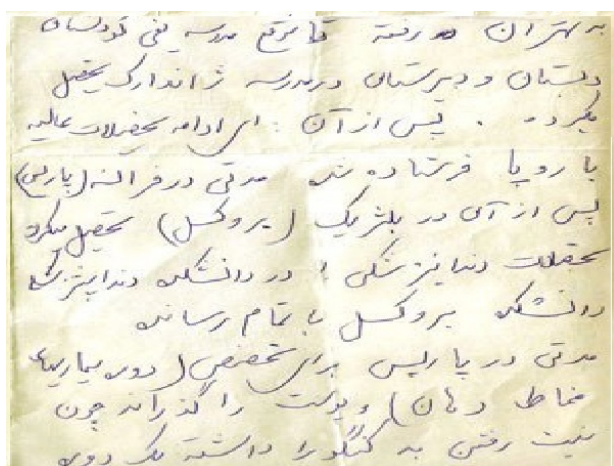 به تهران رفته تا موقع مدرسه یعنی کودکستان
دبستان و دبیرستان در مدرسه ژاندارک تحصیل
میکرد . پس از آن برای ادامه تحصیلات عالیه
باروپا فرستاده شد مدتی در فرانسه (پاریس)
پس از آن در بلژیک (بروکسل) تحصیل میکرد
تحصیلات دندانپزشکی را در دانشکده دندانپزشکی
دانشگاه بروکسل با تمام رساند
مدتی در پاریس برای تخصص (دوره بیماریهای
مخاط دهان) و پوست را گذراند چون
نیت رفتن به کنگو را داشته یک دوره